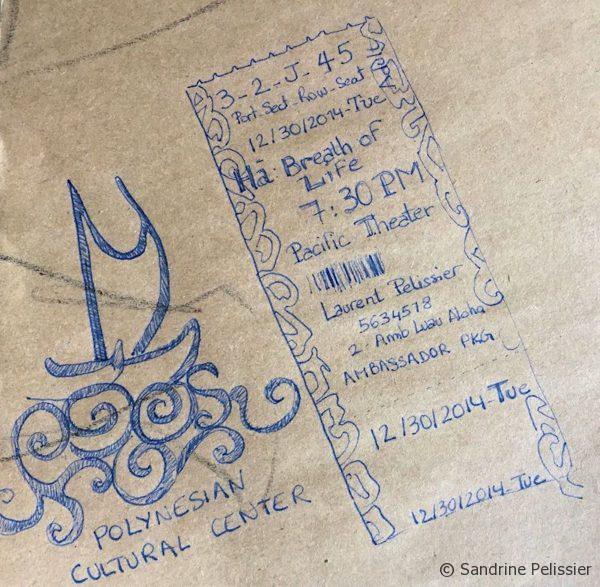 3-2-J-45
Port-Sect-Row-Seat
12/30/2014-Tue
Hā: Breath of
Life
7:30 PM
Pacific Theater
Laurent Pelissier
5634518
2: Amb Luau Aloha
AMBASSADOR PKG
12/30/2014-Tue
12/30/2014-Tue
POLYNESIAN
CULTURAL CENTER
© Sandrine Pelissier